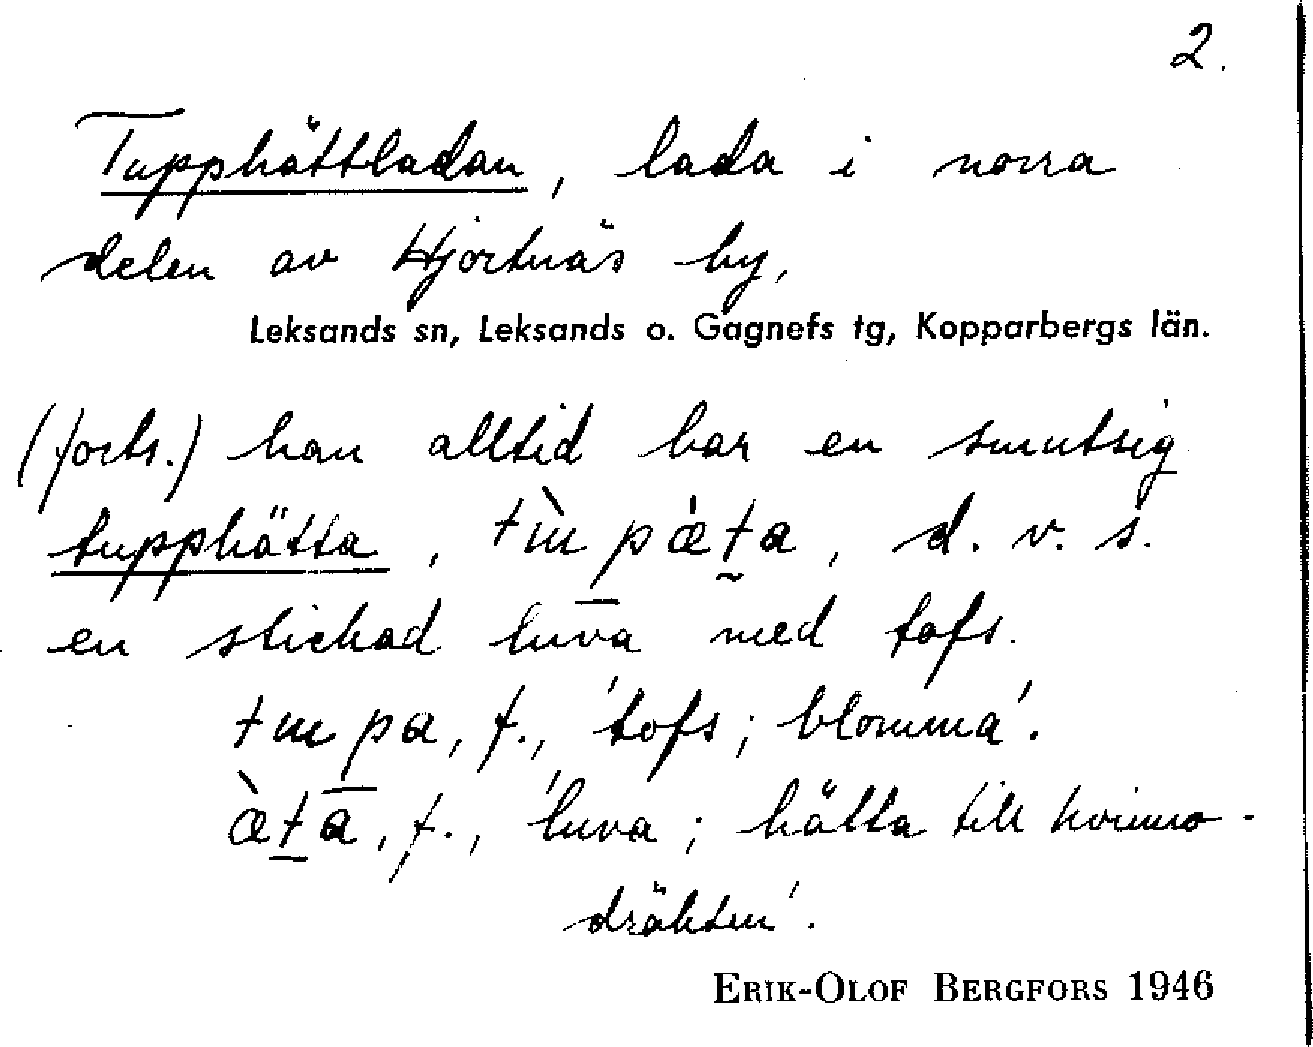 2.
Tupphättladan, lada i norra
delen av Hjortnäs by,
Leksands sn, Leksands o. Gagnefs tg, Kopparbergs län.
(forts.) han alltid bar en smutsig
tupphätta, d. v. s.
en stickad luva med tofs.
f., 'tofs; blomma'.
f., 'luva; hätta till kvinno-
dräkten'.
ERIK-OLOF BERGFORS 1946